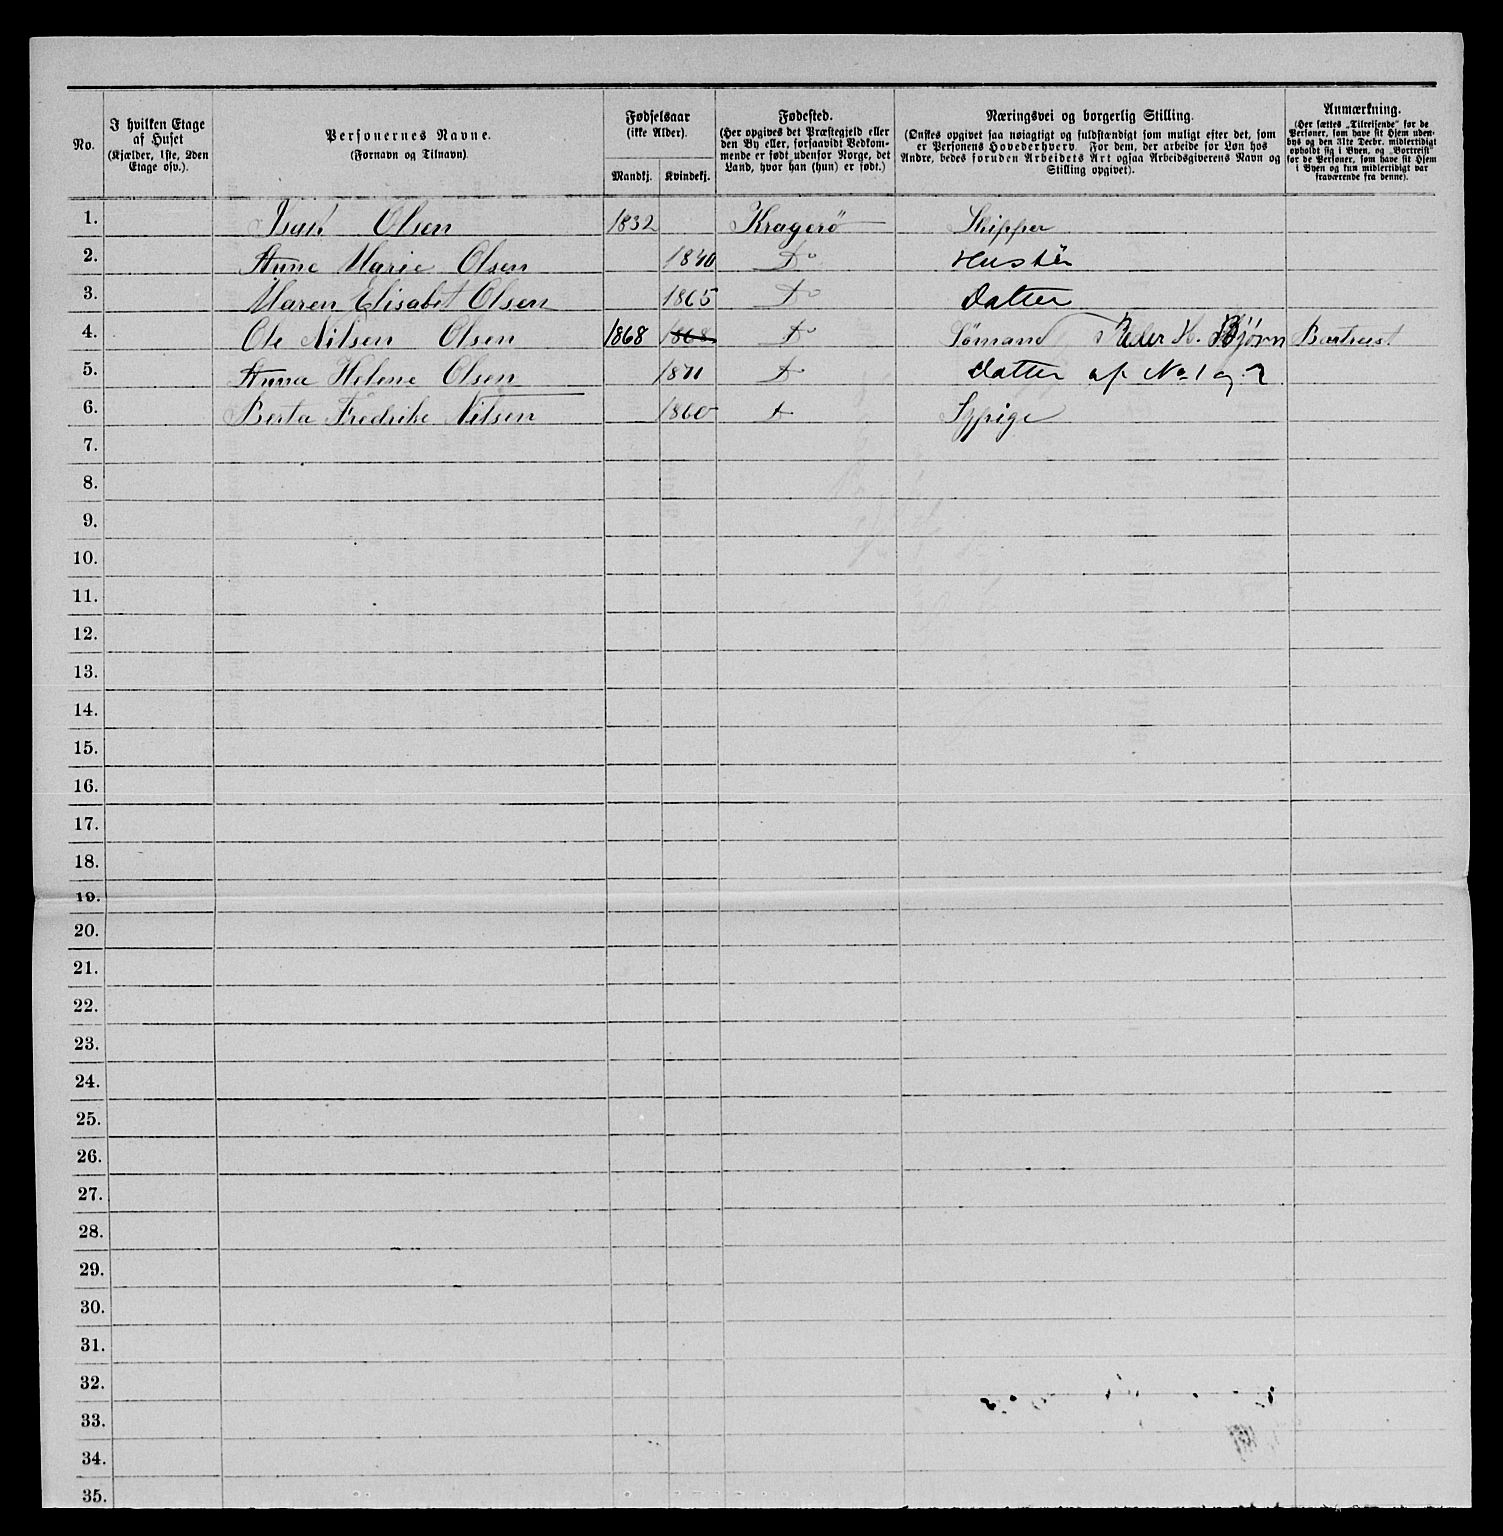 No.
I hvilken Etage
af Huset
(Kjælder, 1ste, 2den
Etage osv.).
Personernes Navne.
(Fornavn og Tilnavn).
Fødselsaar
(ikke Alder).
Mandkj. Kvindekj.
Fødested.
(Her opgives det Præstegjeld eller
den By eller, forsaavidt Vedkom-
mende er født udenfor Norge, det
Land, hvor han (hun) er født.)
Næringsvei og borgerlig Stilling.
(Ønskes opgivet saa nøiagtigt og fuldstændigt som muligt efter det, som
er Personens Hovederhverv. For dem, der arbeide for Løn hos
Andre, bedes foruden Arbeidets Art ogsaa Arbeidsgiverens Navn og
Stilling opgivet).
Anmærkning.
(Her sættes „Tilreisende“ for de
Personer, som have sit Hjem uden-
bys og den 31te Decbr. midlertidigt
opholdt sig i Byen, og „Bortreist“
for de Personer, som have sit Hjem
i Byen og kun midlertidigt var
fraværende fra denne).
1. Isak Olsen 1832 Kragerö Skipper
2. Anne Marie Olsen 1840 Do Hustru
3. Maren Elisabet Olsen 1865 Do Datter
4. Ole Nilsen Olsen 1868 1868 Do Sömand Peder H. Bjørn Bortreist
5. Anna Helene Olsen 1871 Do Datter af No 1 og 2
6. Berta Fredrike Nilsen 1860 Do Sypige
7.
8.
9.
10.
11.
12.
13.
14.
15.
16.
17.
18.
19.
20.
21.
22.
23.
24.
25.
26.
27.
28.
29.
30.
31.
32.
33.
34.
35.